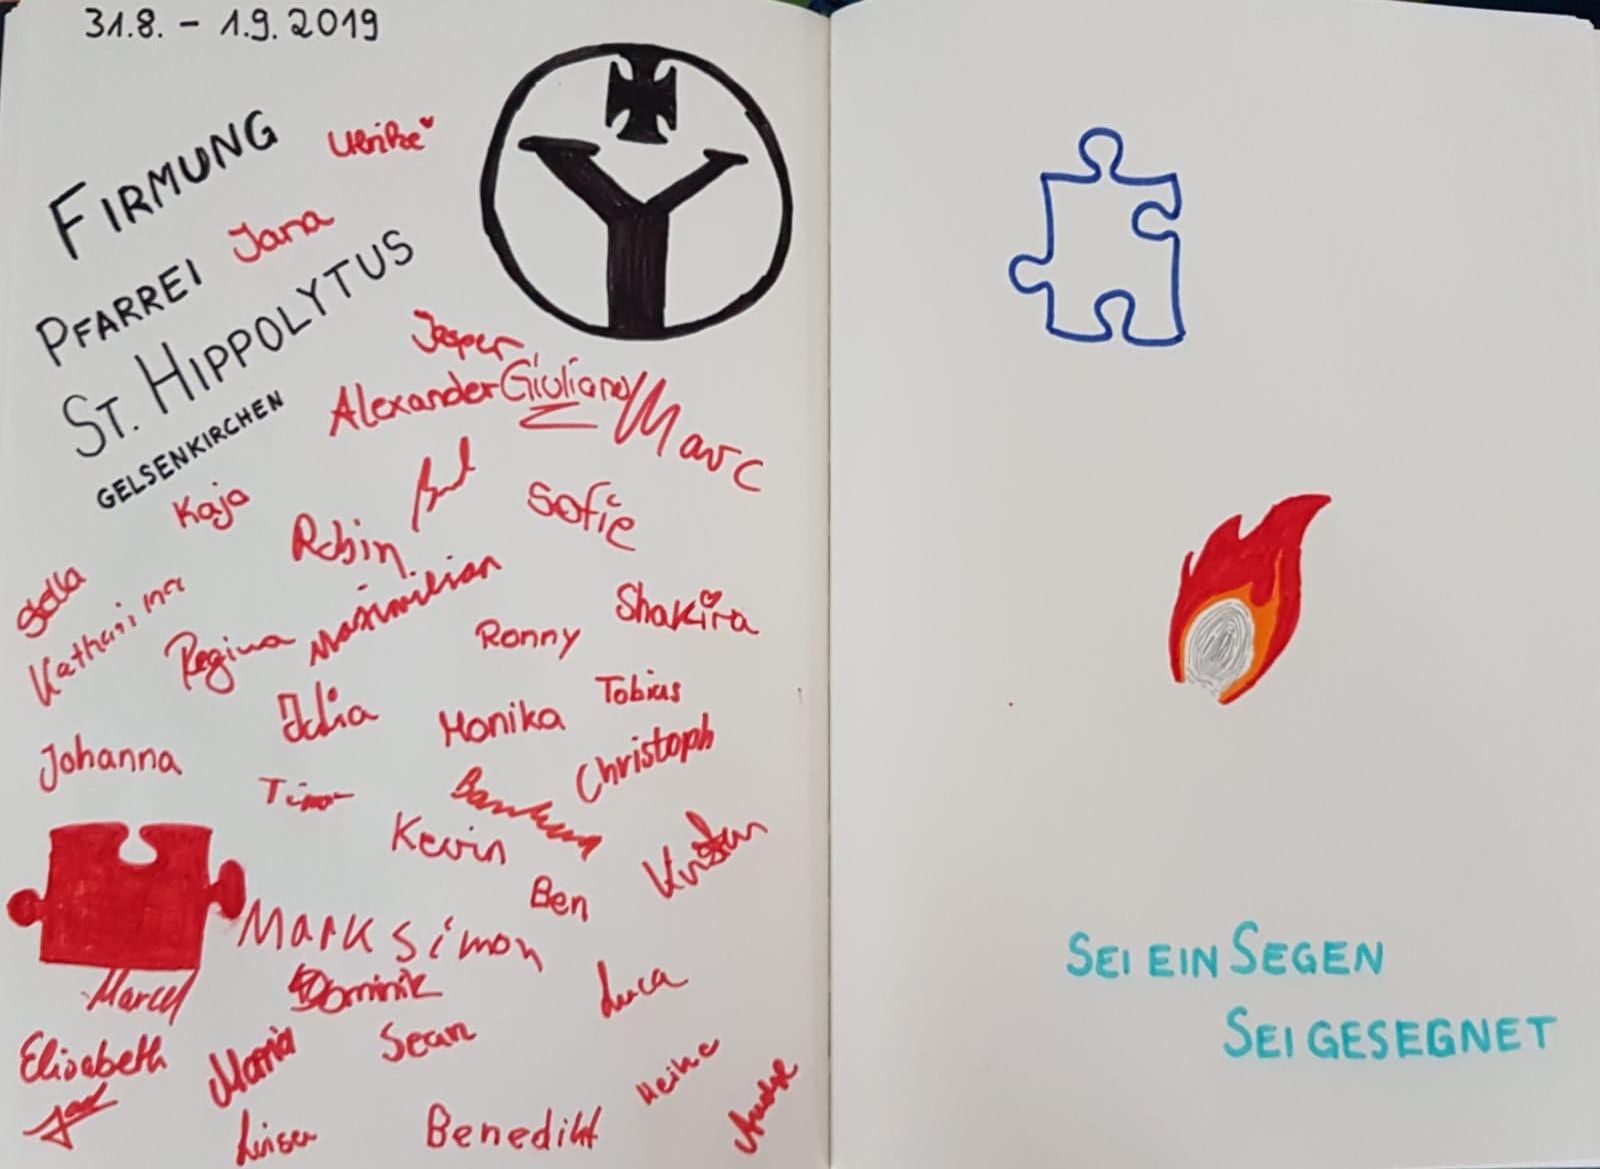 31.8. - 1.9. 2019
FIRMUNG
Ulrike
PFARREI
Jana
ST. HIPPOLYTUS
GELSENKIRCHEN
Jesper
Alexander Giuliano Marc
Kaja
Sofie
Robin
Stella
Katharina
Maximilian
Regina
Ronny
Shakira
Julia
Monika
Tobias
Johanna
Christoph
Timon
Kevin
Ben
Mark Simon
Marcel
Dominik
Luca
Elisabeth
Maria
Sean
Heike
Luisa
Benedikt
SEI EIN SEGEN
SEI GESEGNET